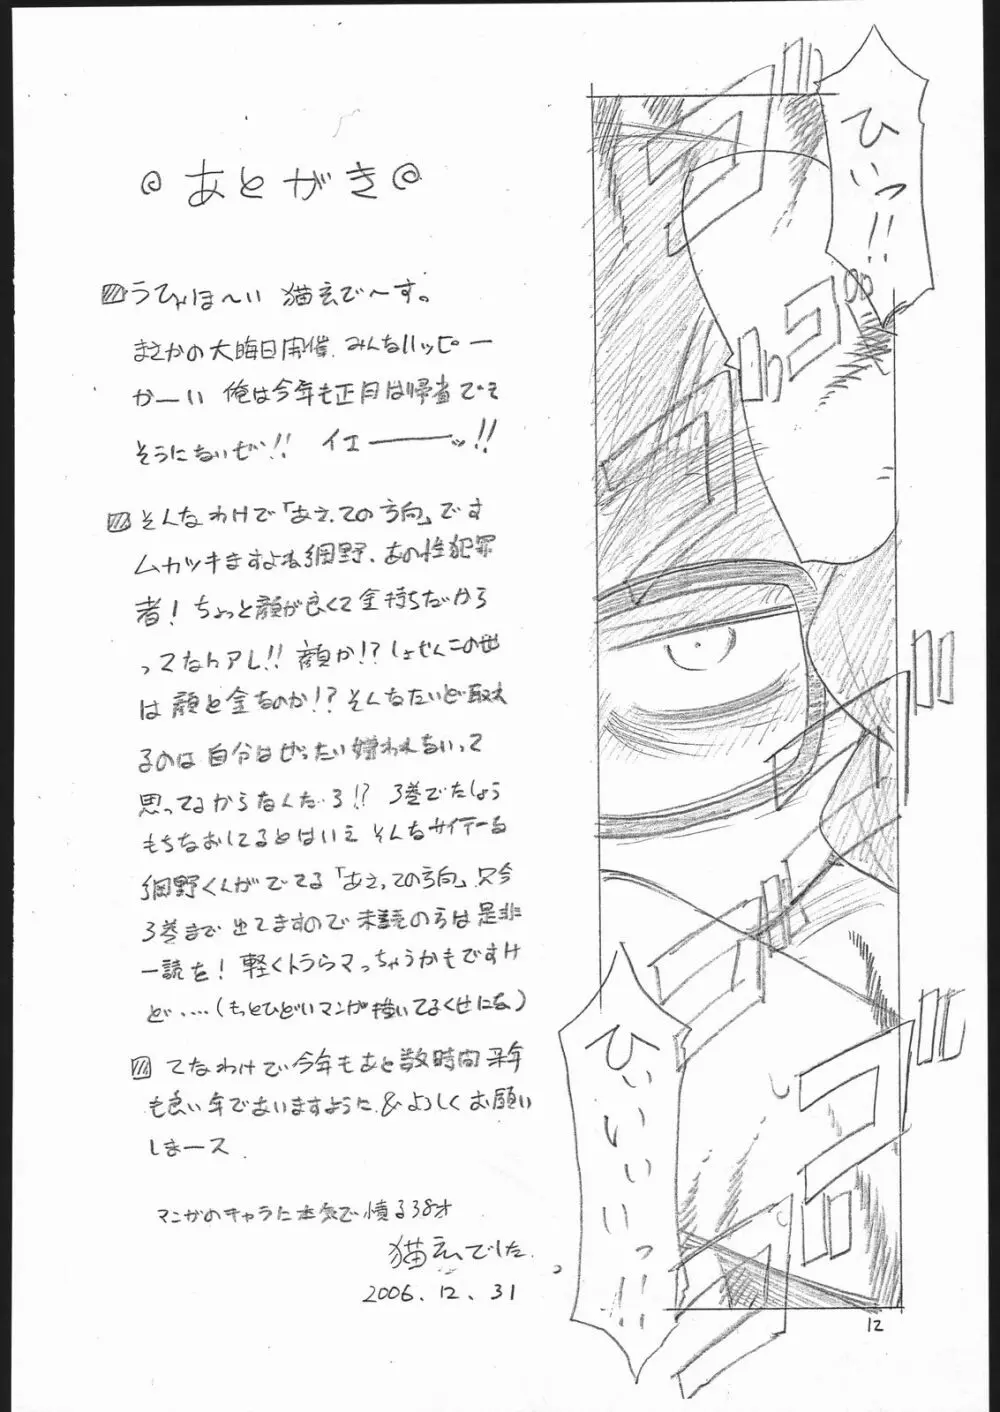 あとがき
うひゃほ〜い 猫玄で〜す。
まさかの大晦日開催、みんなハッピー
かーい 俺は今年も正月は帰省でき
そうにないぜ!! イエーーッ!!
そんなわけで「あえての方向」です
ムカツキますよね網野、あの性犯罪
者! ちょっと顔が良くて金持ちだから
ってなんアレ!! 顔か!? しょせんこの世
は顔と金なのか!? そんなたいど取れ
るのは自分はぜったい嫌われないって
思ってるからなんだろ!? 3巻でたしょう
もちなおしてるとはいえ そんなサイテーな
網野くんがでてる「あえっての方向」只今
3巻まで出てますので未読の方は是非
一読を! 軽くトラウマっちゃうかもですけ
ど・・・・(もっとひどいマンガ描いてるくせにな)
てなわけで今年もあと数時間 来年
も良い年でありますように & よろしくお願い
しまース
マンガのキャラに本気で憤る38才
猫玄でした。
2006.12.31
ひいっ!!
ひいいいいっ!!
12